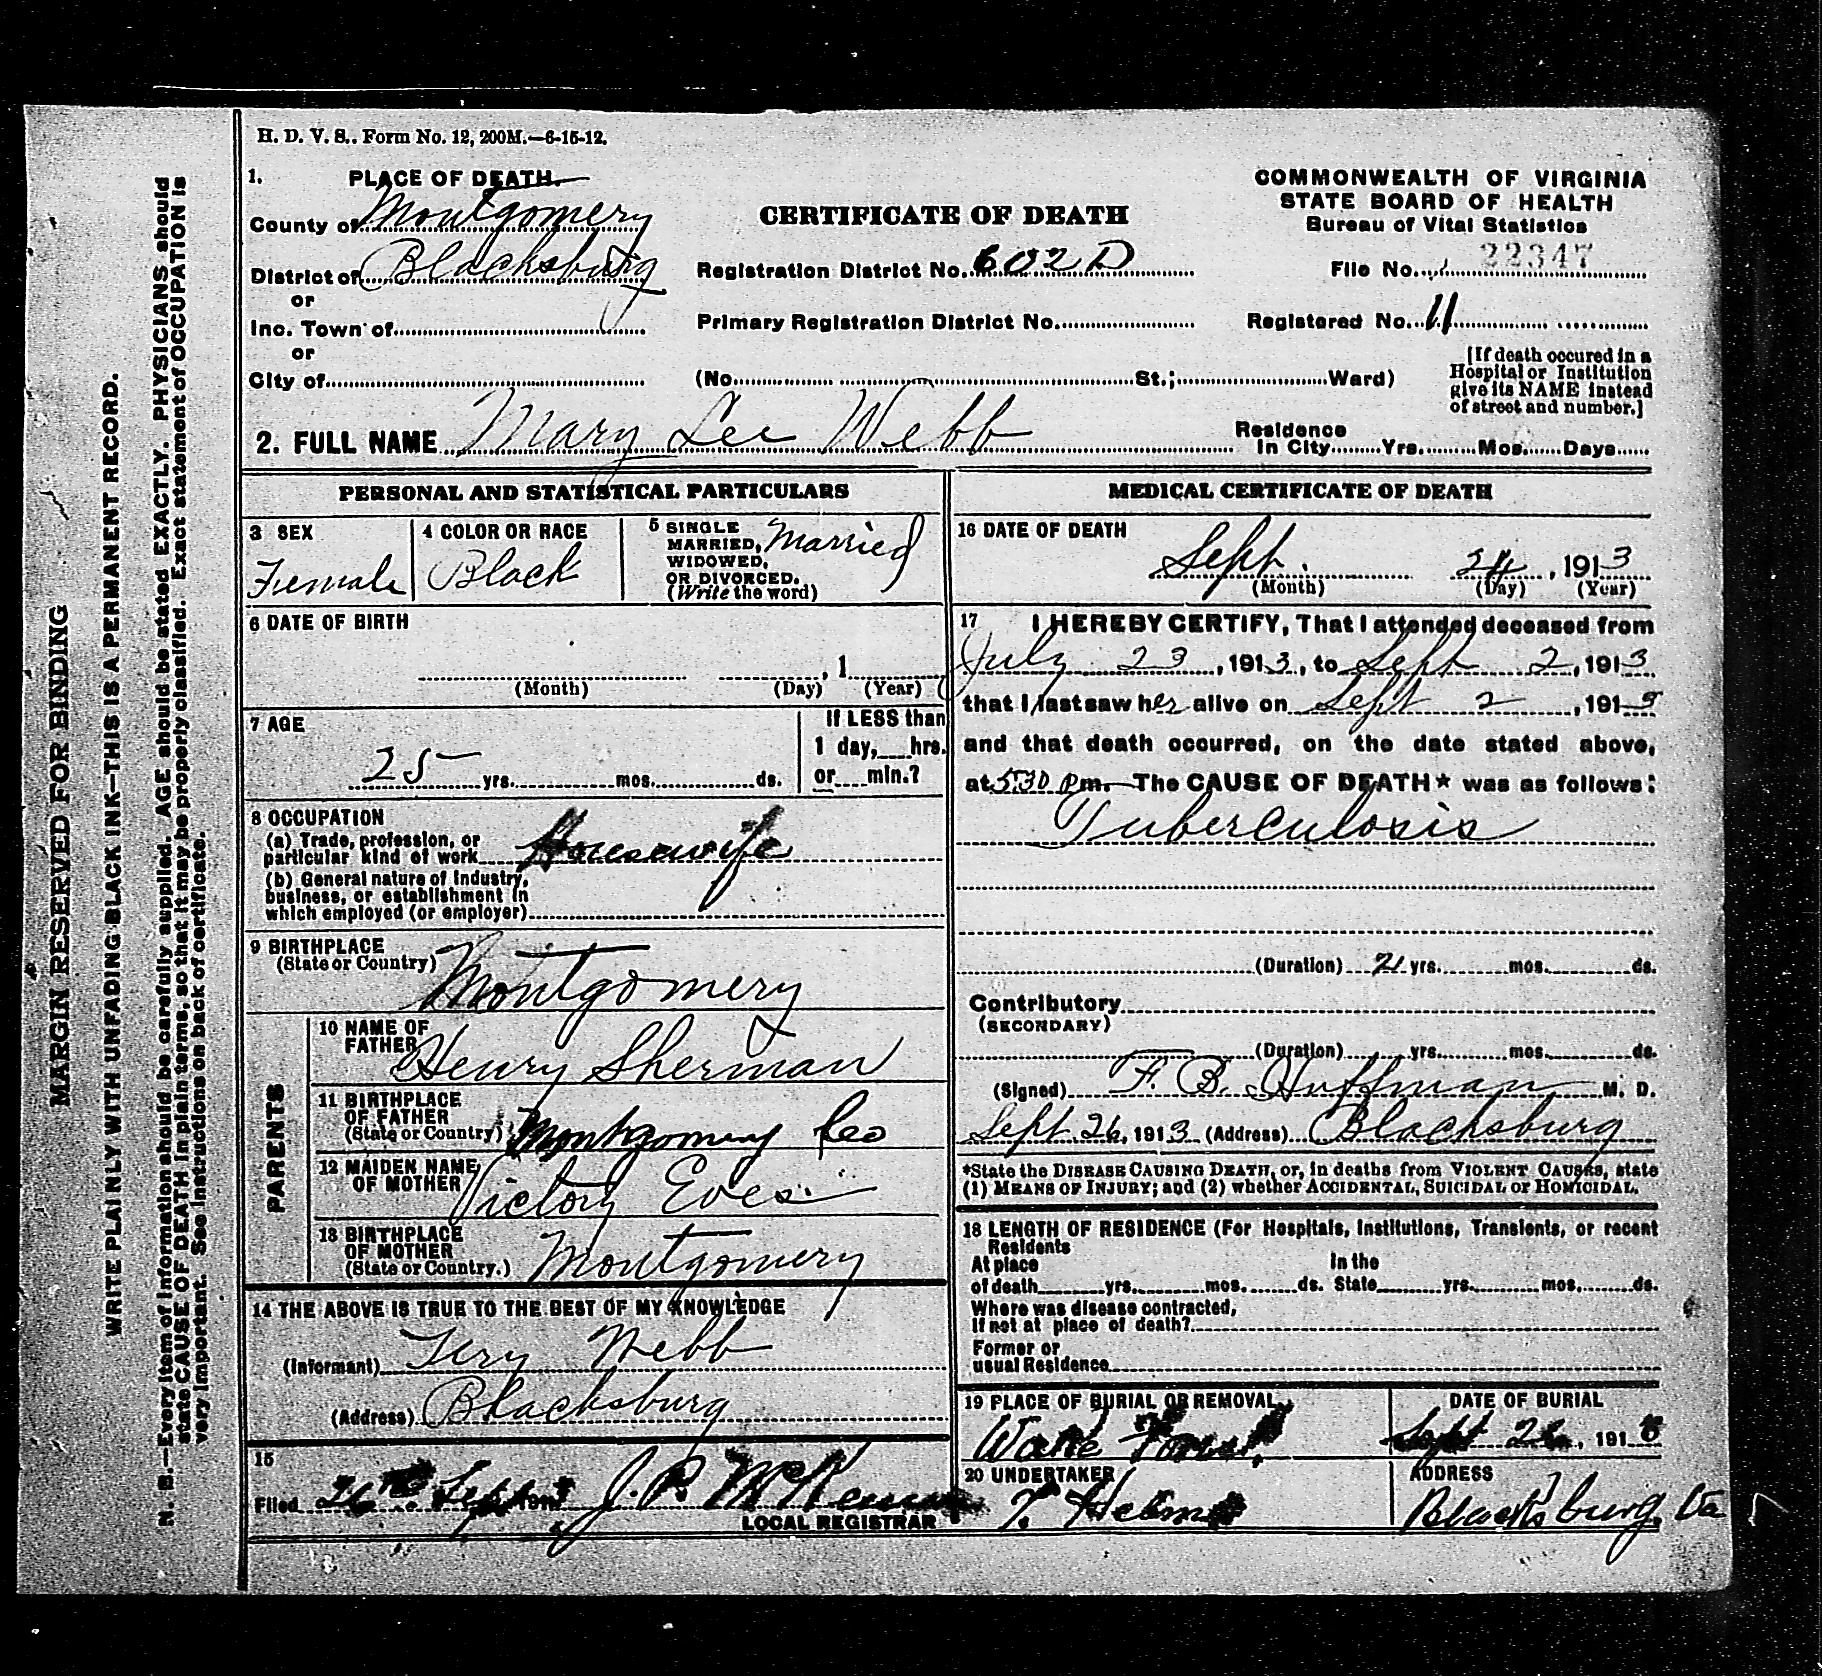 H. D. V. S.. Form No. 12, 200M.—6-15-12.
1. PLACE OF DEATH.
County of Montgomery
District of Blacksburg
or
Inc. Town of
or
City of
CERTIFICATE OF DEATH
Registration District No. 602 D
Primary Registration District No.
(No. St.; Ward)
COMMONWEALTH OF VIRGINIA
STATE BOARD OF HEALTH
Bureau of Vital Statistics
File No. 22347
Registered No. 11
[If death occured in a
Hospital or Institution
give its NAME instead
of street and number.]
2. FULL NAME Mary Lee Webb
Residence
In City Yrs. Mos. Days
PERSONAL AND STATISTICAL PARTICULARS
3 SEX
Female
4 COLOR OR RACE
Black
5 SINGLE
MARRIED,
WIDOWED,
OR DIVORCED.
(Write the word)
Married
6 DATE OF BIRTH
, 1
(Month) (Day) (Year)
7 AGE
25 yrs. mos. ds.
If LESS than
1 day, hrs.
or min.?
8 OCCUPATION
(a) Trade, profession, or
particular kind of work Housewife
(b) General nature of industry,
business, or establishment in
which employed (or employer)
9 BIRTHPLACE
(State or Country) Montgomery
PARENTS
10 NAME OF
FATHER Henry Sherman
11 BIRTHPLACE
OF FATHER
(State or Country) Montgomery Co
12 MAIDEN NAME
OF MOTHER Victory Eves
13 BIRTHPLACE
OF MOTHER
(State or Country.) Montgomery
14 THE ABOVE IS TRUE TO THE BEST OF MY KNOWLEDGE
(Informant) Webb
(Address) Blacksburg
15
Filed 26th Sept 1913 J. P.
LOCAL REGISTRAR
MEDICAL CERTIFICATE OF DEATH
16 DATE OF DEATH
Sept. 24, 1913
(Month) (Day) (Year)
17 I HEREBY CERTIFY, That I attended deceased from
July 23, 1913, to Sept 2, 1913
that I last saw her alive on Sept 2, 191
and that death occurred, on the date stated above,
at 5:30 Pm. The CAUSE OF DEATH* was as follows:
Tuberculosis
(Duration) yrs. mos. ds.
Contributory
(SECONDARY)
(Duration) yrs. mos. ds.
(Signed) F. B. Huffman M. D.
Sept. 26, 1913 (Address) Blacksburg
*State the DISEASE CAUSING DEATH, or, in deaths from VIOLENT CAUSES, state
(1) MEANS OF INJURY; and (2) whether ACCIDENTAL, SUICIDAL or HOMICIDAL.
18 LENGTH OF RESIDENCE (For Hospitals, Institutions, Transients, or recent
Residents
At place In the
of death yrs. mos. ds. State yrs. mos. ds.
Where was disease contracted,
If not at place of death?
Former or
usual Residence
19 PLACE OF BURIAL OR REMOVAL
Wake Forest
DATE OF BURIAL
Sept 26, 191
20 UNDERTAKER
T. Helms
ADDRESS
Blacksburg, Va
MARGIN RESERVED FOR BINDING
WRITE PLAINLY WITH UNFADING BLACK INK—THIS IS A PERMANENT RECORD.
N. B.—Every item of information should be carefully supplied. AGE should be stated EXACTLY. PHYSICIANS should
state CAUSE OF DEATH in plain terms, so that it may be properly classified. Exact statement of OCCUPATION is
very important. See instructions on back of certificate.